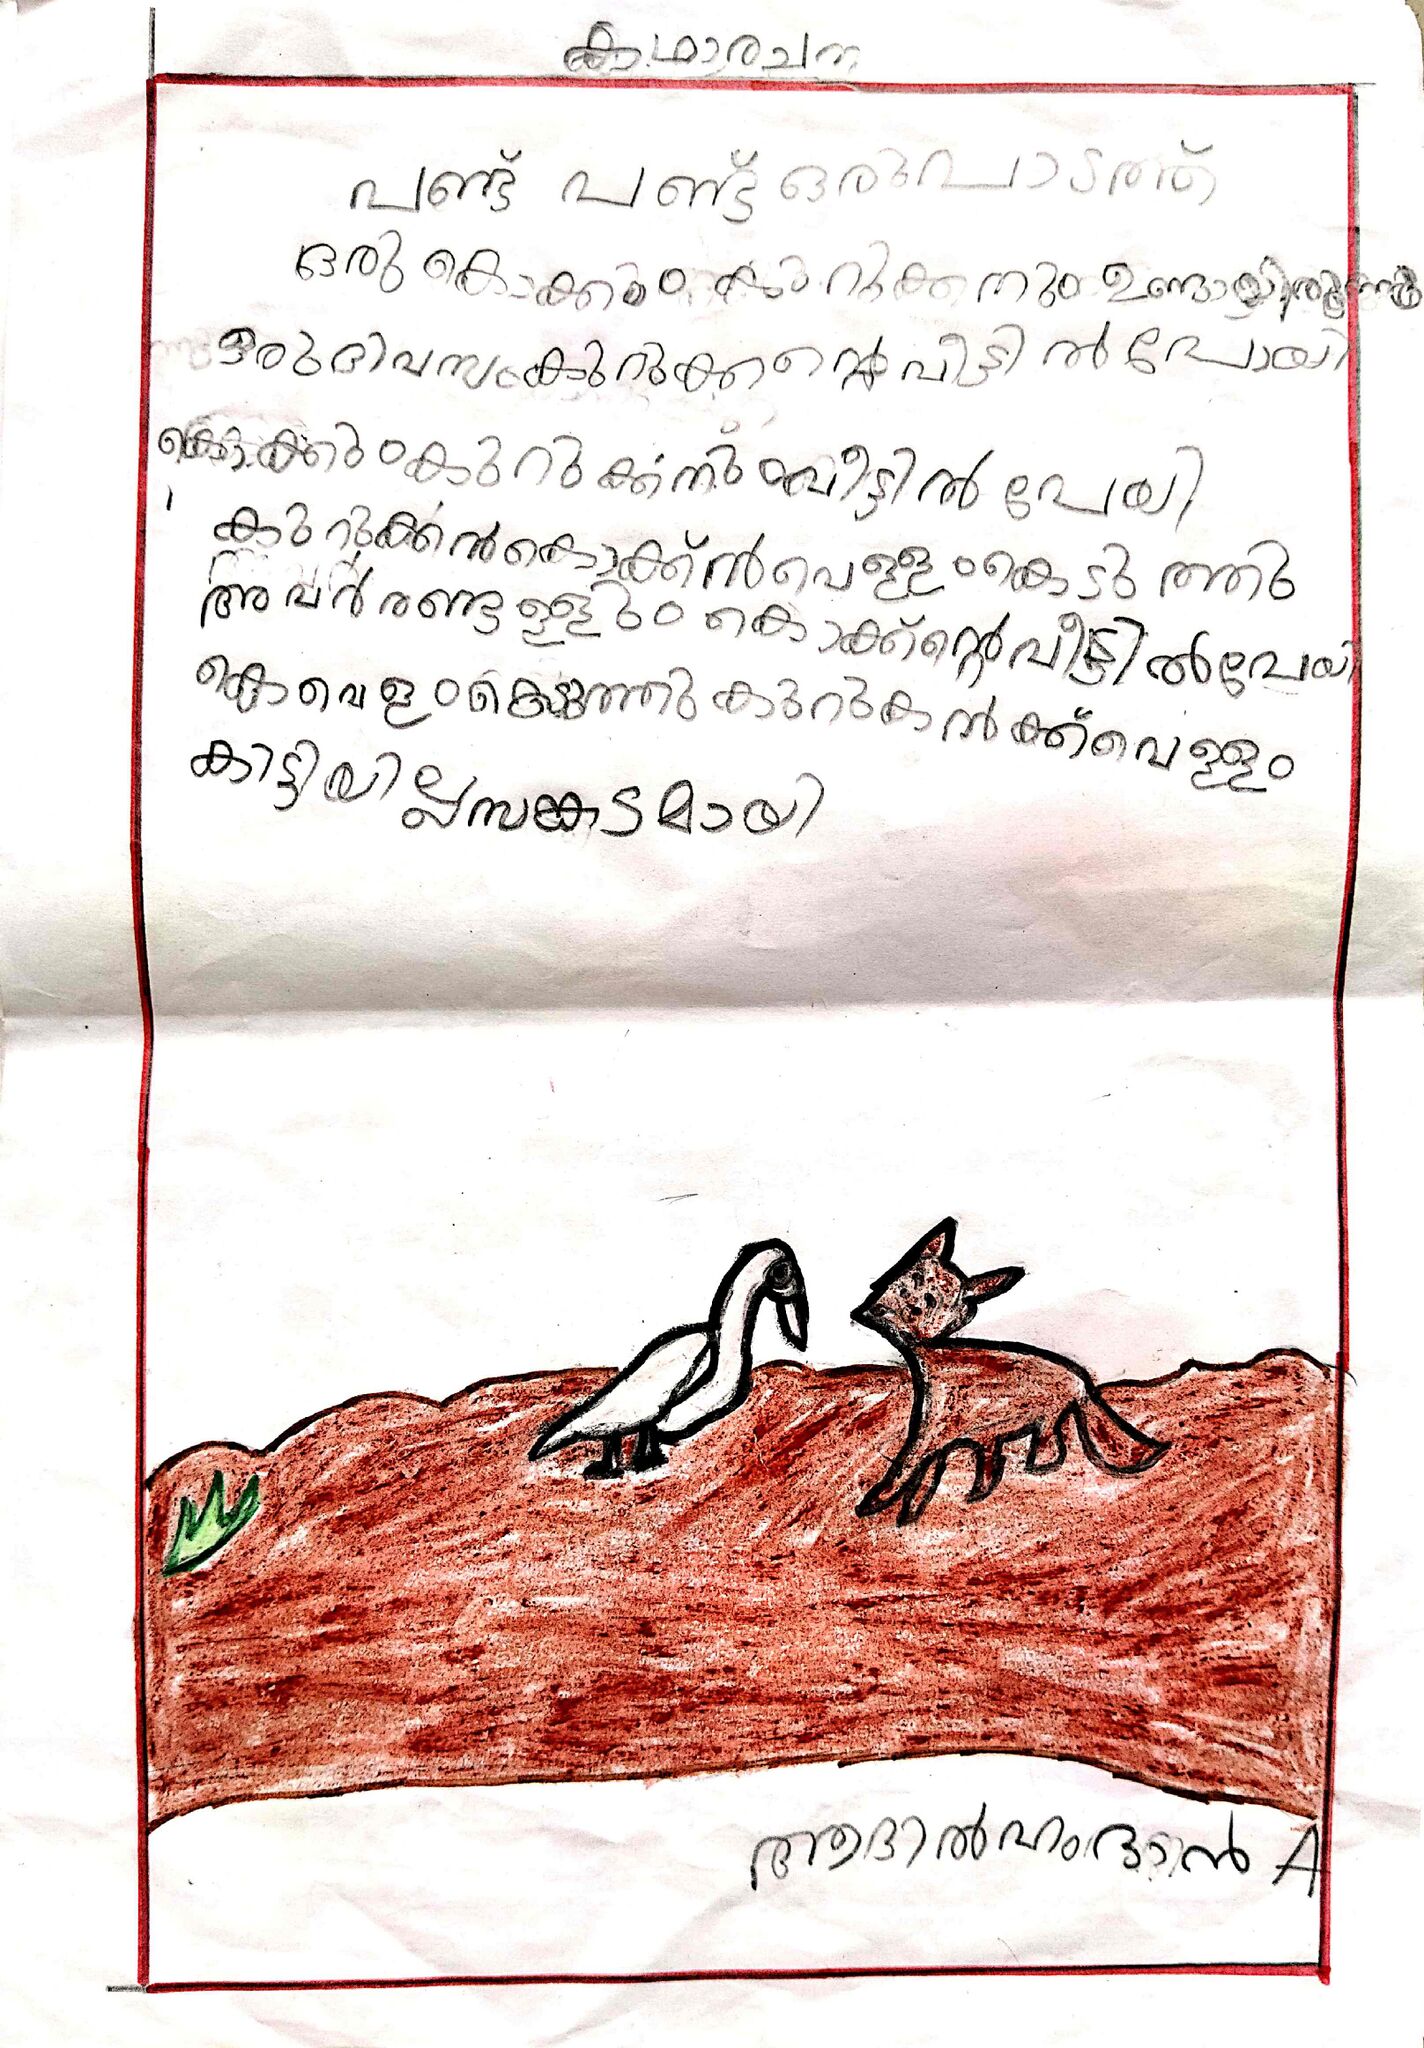 കഥാരചന
പണ്ട് പണ്ട് ഒരു പാടത്ത്
ഒരു കൊക്കും കുറുക്കനും ഉണ്ടായിരുന്നു
ഒരു ദിവസം കുറുക്കന്റെ വീട്ടിൽ പോയി
കൊക്കും കുറുക്കനും വീട്ടിൽ പേയി
കുറുക്കൻ കൊക്ക്ന് വെള്ളം കൊടുത്തു
അവർ രണ്ടള്ളും കൊക്ക്ന്റെ വീട്ടിൽ പേയി
വെളം കെടുത്തു കുറുകൻക്ക് വെള്ളം
കിട്ടിയില്ല സങ്കടമായി
ആദിൽ ഹംദാൻ A